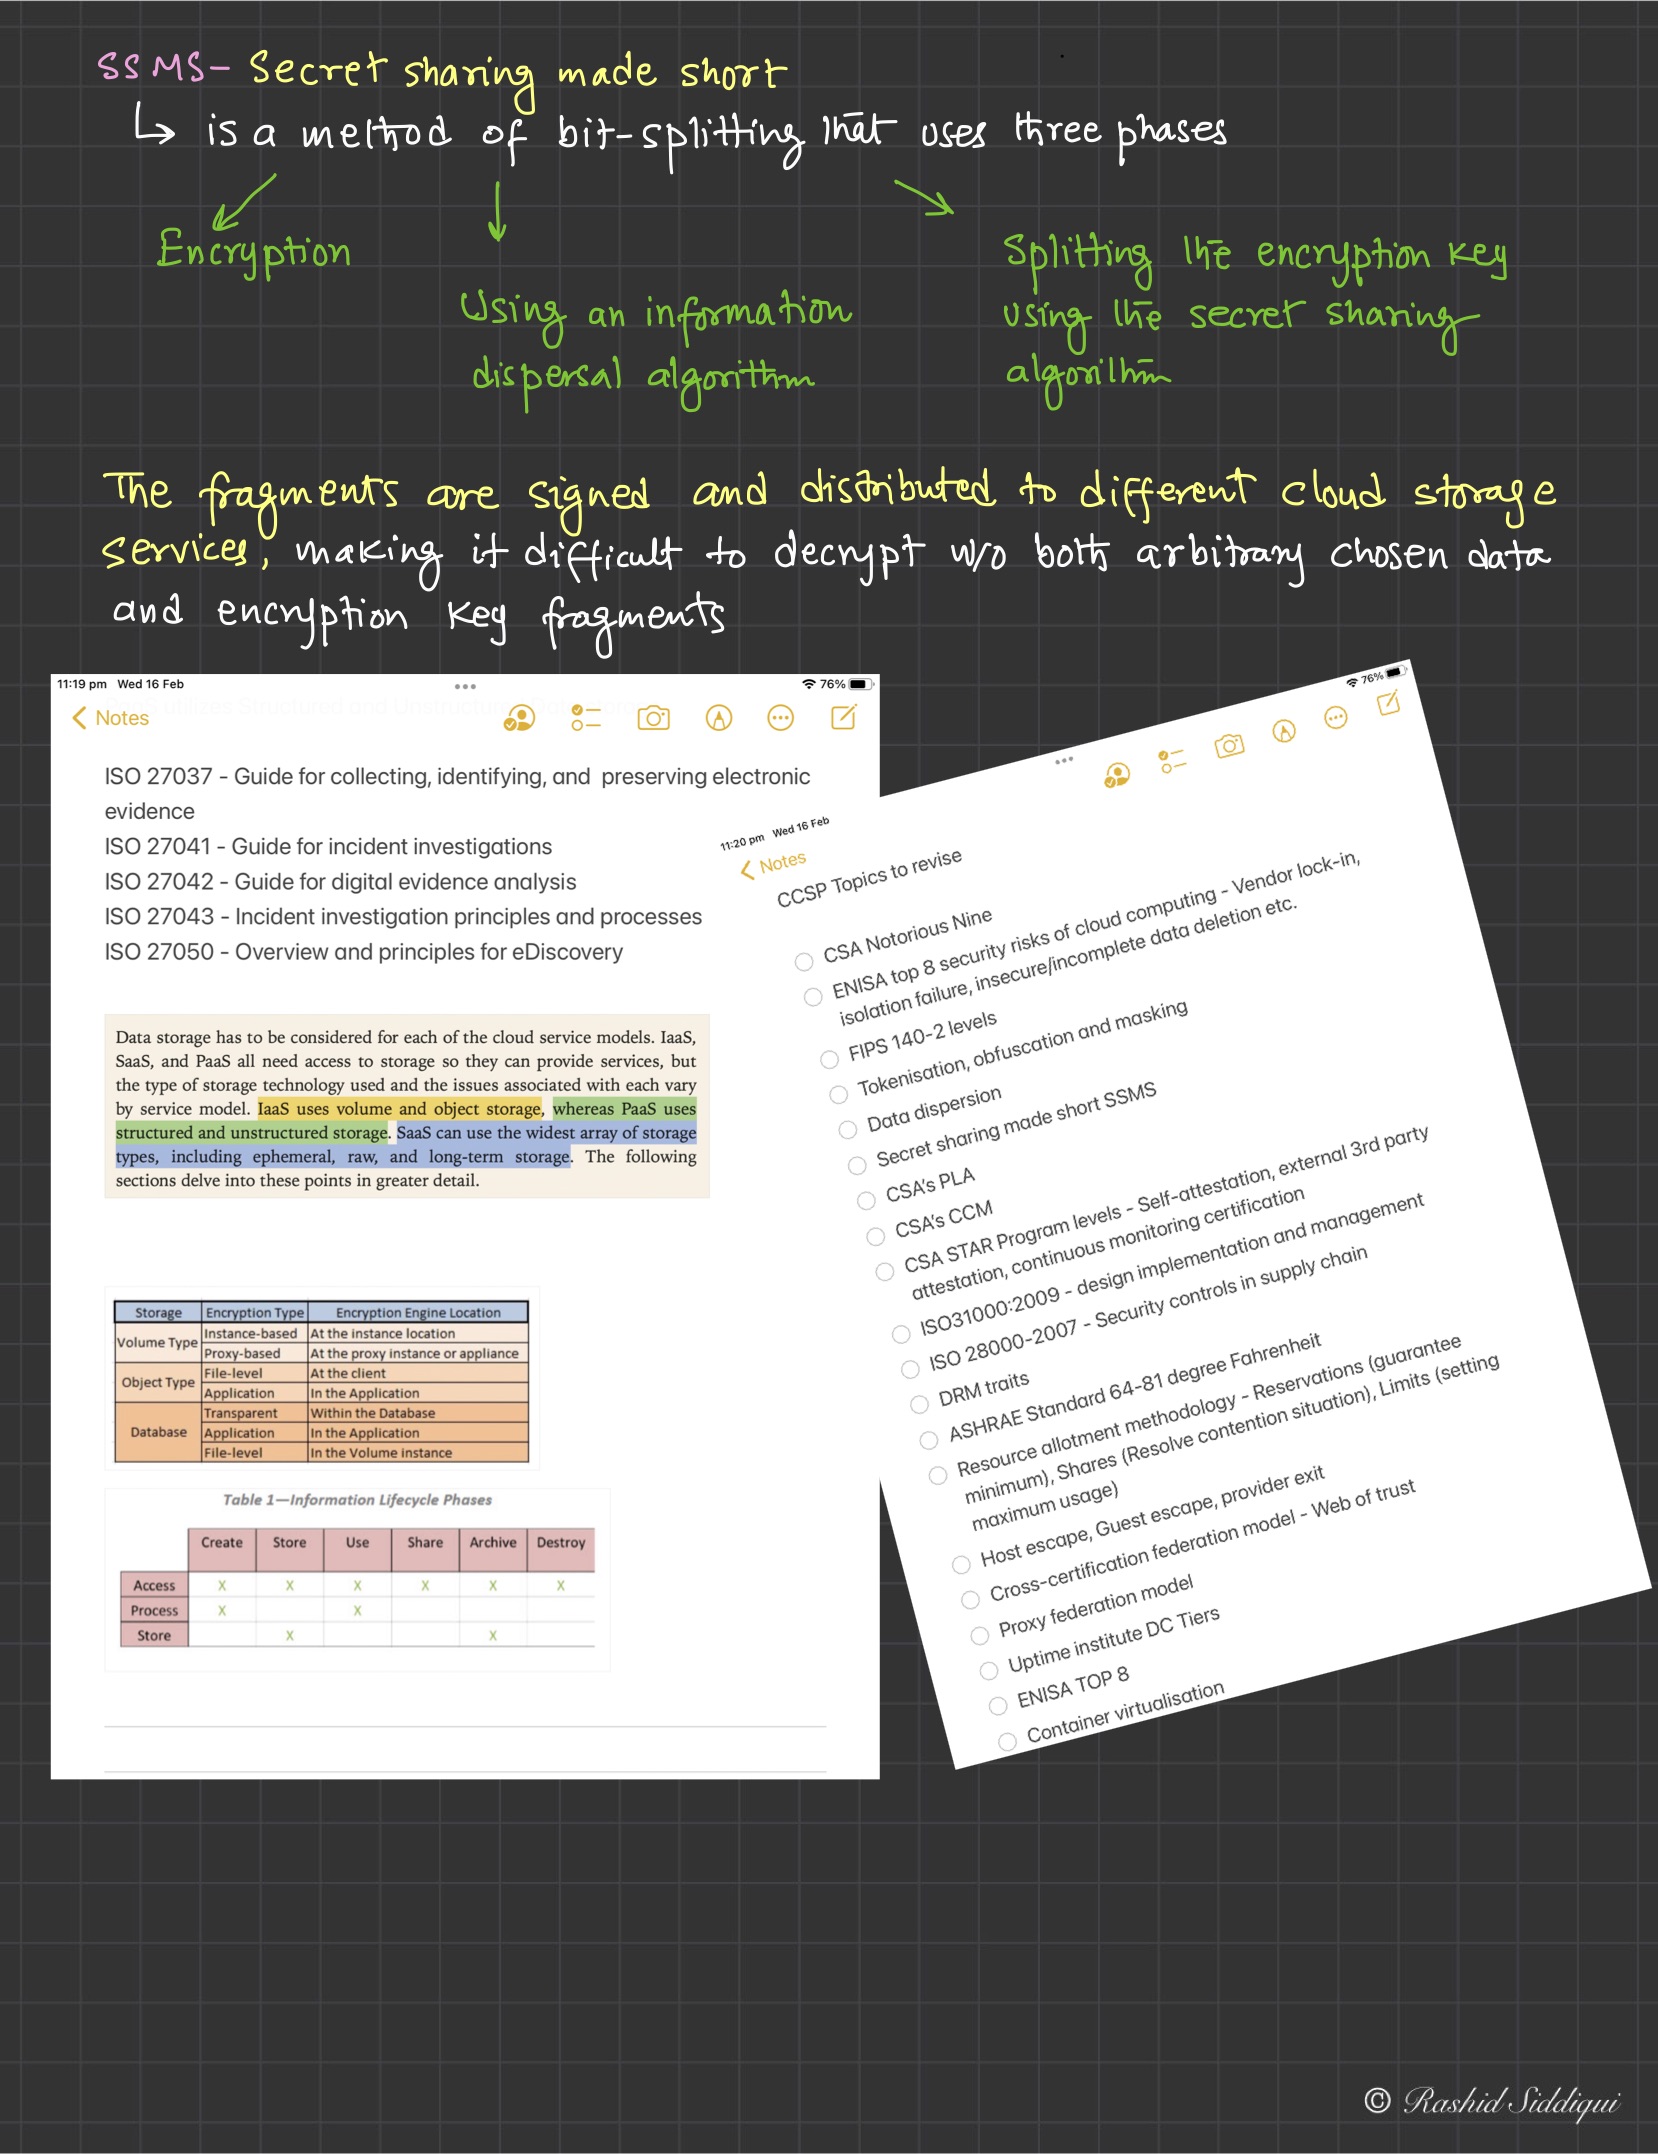 SSMS- Secret sharing made short
↳ is a method of bit-splitting that uses three phases
Encryption
Using an information
dispersal algorithm
Splitting the encryption key
using the secret sharing
algorithm
The fragments are signed and distributed to different cloud storage
services, making it difficult to decrypt w/o both arbitrary chosen data
and encryption key fragments
11:19 pm Wed 16 Feb
76%
Notes
ISO 27037 - Guide for collecting, identifying, and preserving electronic
evidence
ISO 27041 - Guide for incident investigations
ISO 27042 - Guide for digital evidence analysis
ISO 27043 - Incident investigation principles and processes
ISO 27050 - Overview and principles for eDiscovery
Data storage has to be considered for each of the cloud service models. IaaS,
SaaS, and PaaS all need access to storage so they can provide services, but
the type of storage technology used and the issues associated with each vary
by service model. IaaS uses volume and object storage, whereas PaaS uses
structured and unstructured storage. SaaS can use the widest array of storage
types, including ephemeral, raw, and long-term storage. The following
sections delve into these points in greater detail.
Storage Encryption Type Encryption Engine Location
Volume Type Instance-based At the instance location
Proxy-based At the proxy instance or appliance
Object Type File-level At the client
Application In the Application
Database Transparent Within the Database
Application In the Application
File-level In the Volume instance
Table 1—Information Lifecycle Phases
Create Store Use Share Archive Destroy
Access X X X X X X
Process X X
Store X X
76%
11:20 pm Wed 16 Feb
Notes
CCSP Topics to revise
CSA Notorious Nine
ENISA top 8 security risks of cloud computing - Vendor lock-in,
isolation failure, insecure/incomplete data deletion etc.
FIPS 140-2 levels
Tokenisation, obfuscation and masking
Data dispersion
Secret sharing made short SSMS
CSA's PLA
CSA's CCM
CSA STAR Program levels - Self-attestation, external 3rd party
attestation, continuous monitoring certification
ISO31000:2009 - design implementation and management
ISO 28000-2007 - Security controls in supply chain
DRM traits
ASHRAE Standard 64-81 degree Fahrenheit
Resource allotment methodology - Reservations (guarantee
minimum), Shares (Resolve contention situation), Limits (setting
maximum usage)
Host escape, Guest escape, provider exit
Cross-certification federation model - Web of trust
Proxy federation model
Uptime institute DC Tiers
ENISA TOP 8
Container virtualisation
© Rashid Siddiqui